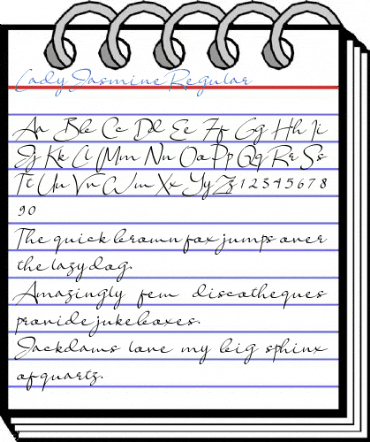 Lady Jasmine Regular
Aa Bb Cc Dd Ee Ff Gg Hh Ii
Jj Kk Ll Mm Nn Oo Pp Qq Rr Ss
Tt Uu Vv Ww Xx Yy Zz 1 2 3 4 5 6 7 8
9 0
The quick brown fox jumps over
the lazy dog.
Amazingly few discotheques
provide jukeboxes.
Jackdaws love my big sphinx
of quartz.